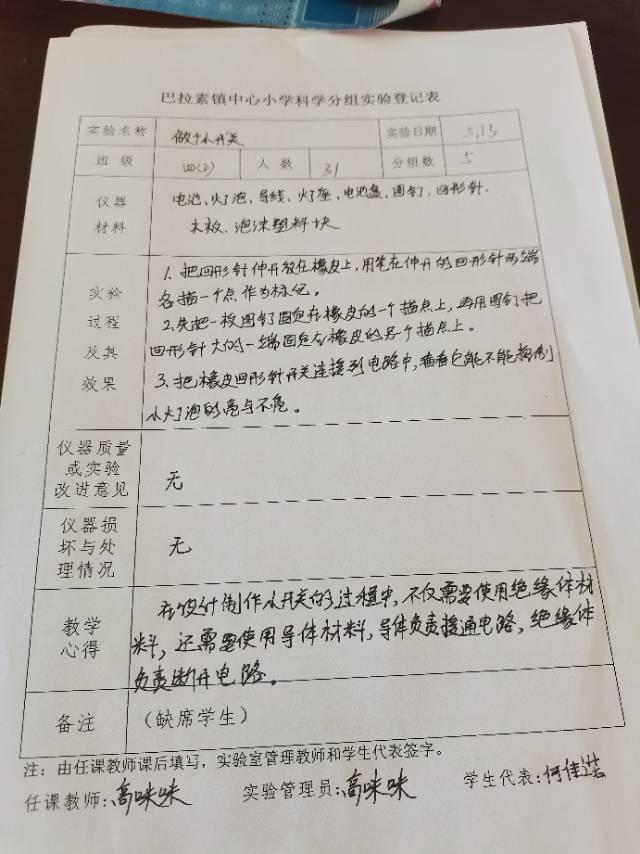 巴拉素镇中心小学科学分组实验登记表
实验名称 做个小开关 实验日期 5.13
班 级 四(2) 人 数 31 分组数 5
仪器 材料 电池、灯泡、导线、灯座、电池盒、图钉、回形针、
木板、泡沫塑料块
实验 过程 及其 效果 1. 把回形针伸开放在橡皮上,用笔在伸开的回形针两端
各描一个点作为标记。
2.先把一枚图钉固定在橡皮的一个描点上,再用图钉把
回形针大的一端固定在橡皮的另个描点上。
3. 把橡皮回形针开关连接到电路中,看看它能不能控制
小灯泡的亮与不亮。
仪器质量 或实验 改进意见 无
仪器损 坏与处 理情况 无
教学 心得 在设计制作小开关的过程中,不仅需要使用绝缘体材
料,还需要使用导体材料,导体负责接通电路,绝缘体
负责断开电路。
备注 (缺席学生)
注:由任课教师课后填写,实验室管理教师和学生代表签字。
任课教师:高咪咪 实验管理员:高咪咪 学生代表:何佳